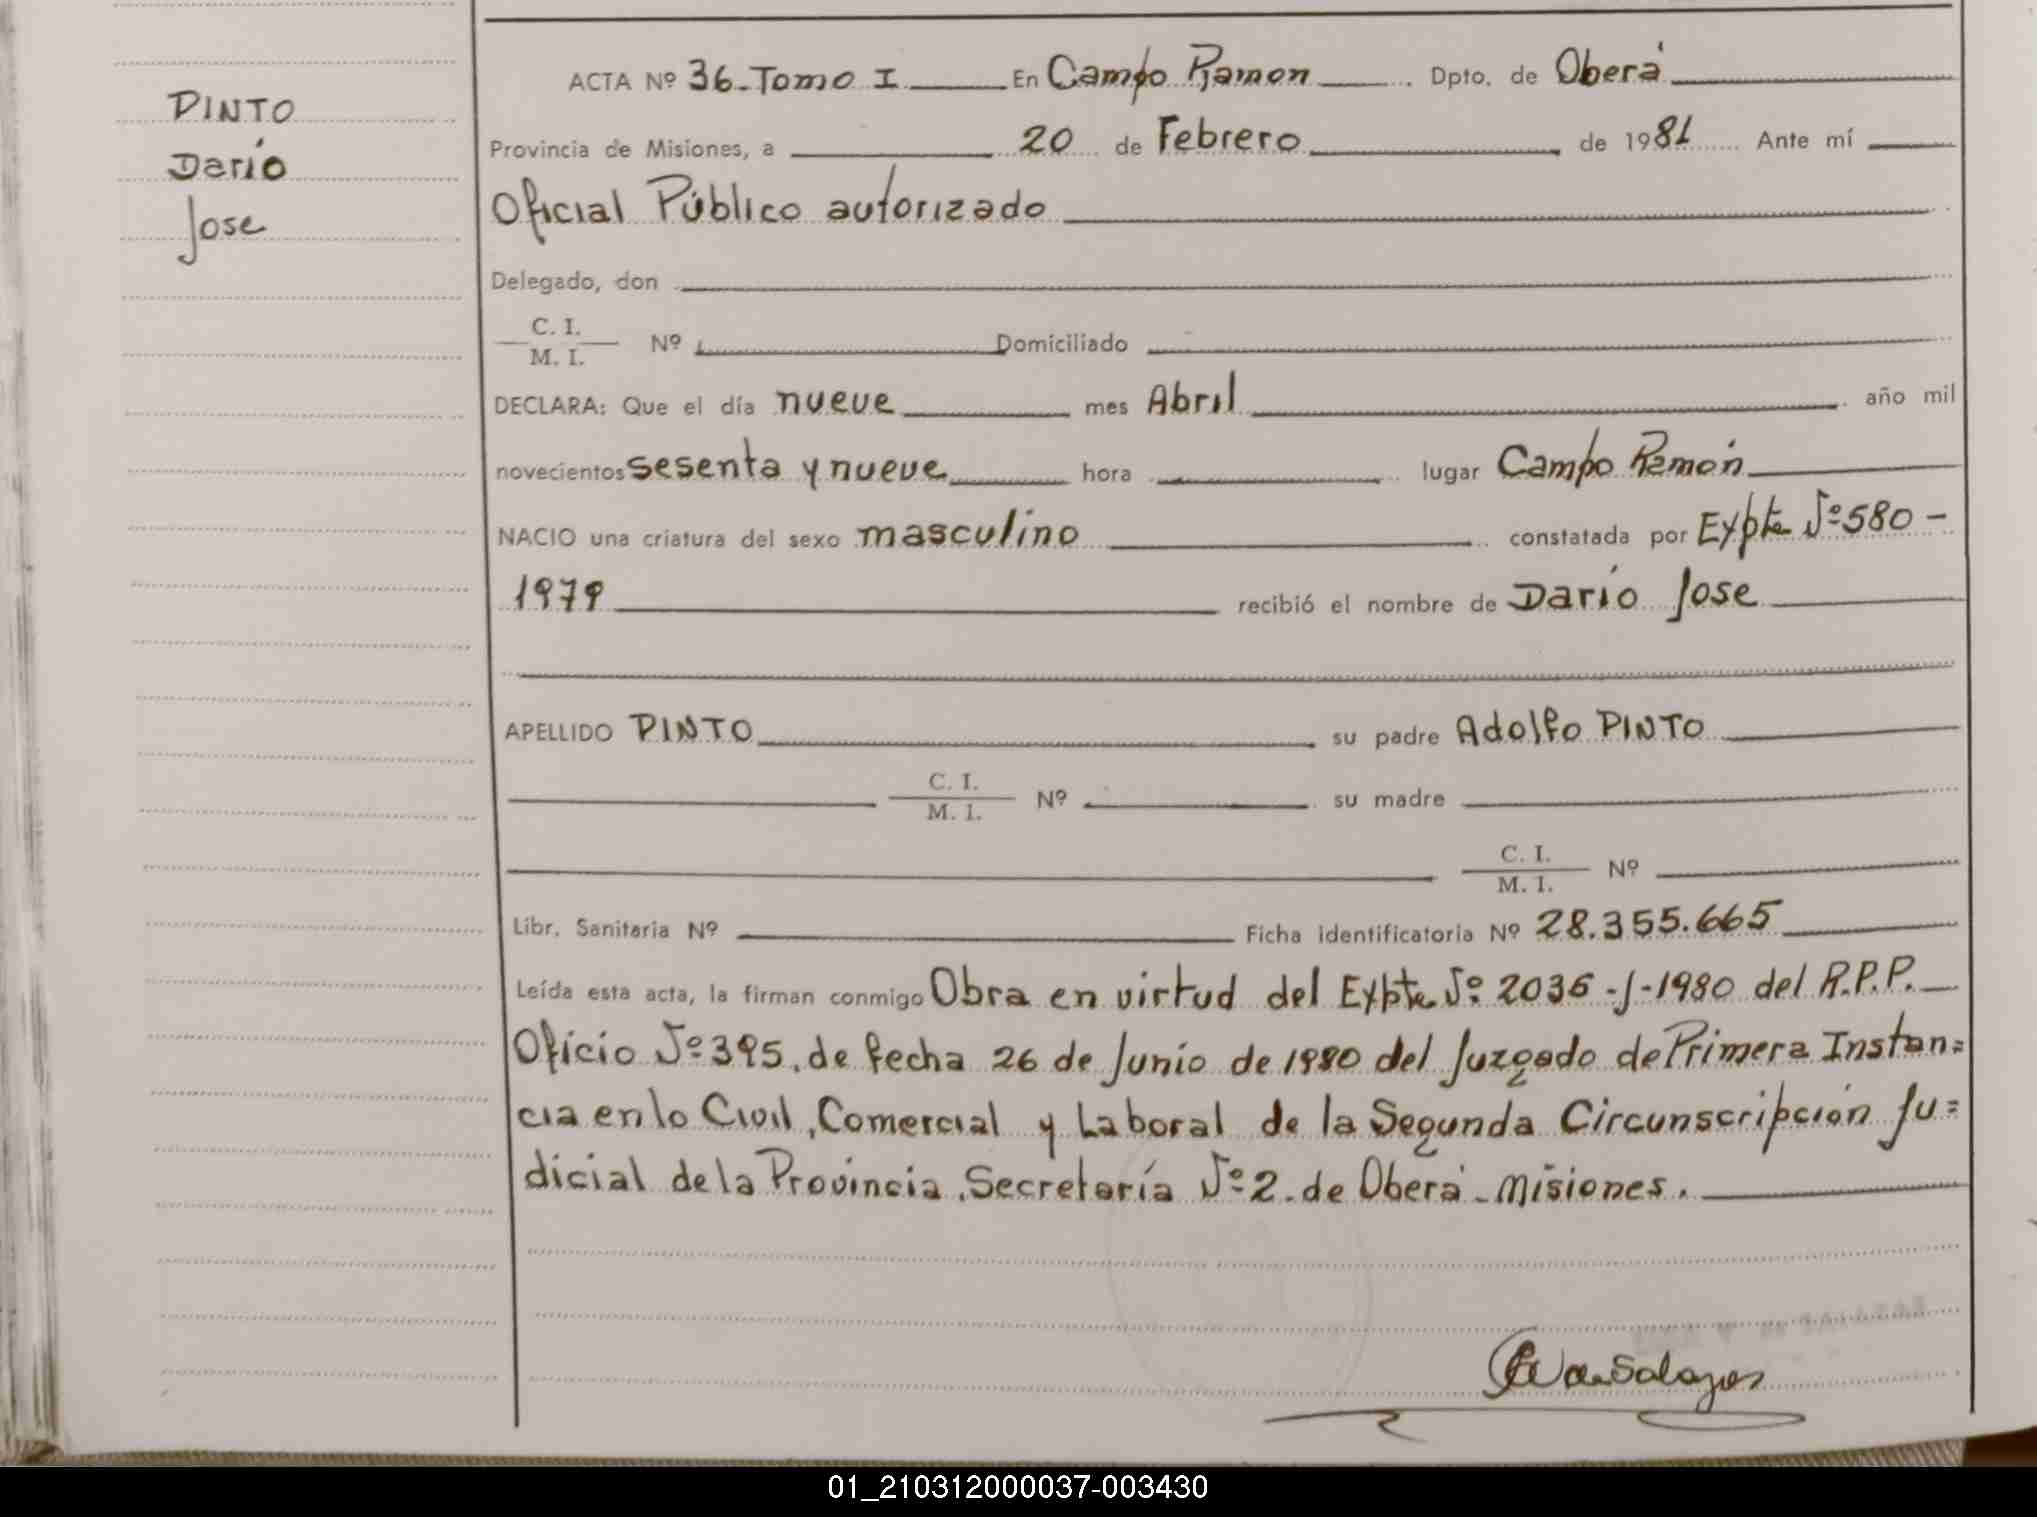 PINTO
Darío
Jose
ACTA Nº 36-Tomo I En Campo Ramon Dpto. de Oberá
Provincia de Misiones, a 20 de Febrero de 1981 Ante mí
Oficial Público autorizado
Delegado, don
C. I.
M. I. Nº Domiciliado
DECLARA: Que el día nueve mes Abril año mil
novecientos sesenta y nueve hora lugar Campo Ramón
NACIO una criatura del sexo masculino constatada por Expte Nº 580 -
1979 recibió el nombre de Darío Jose
APELLIDO PINTO su padre Adolfo PINTO
C. I.
M. I. Nº su madre
C. I.
M. I. Nº
Libr. Sanitaria Nº Ficha identificatoria Nº 28.355.665
Leída esta acta, la firman conmigo Obra en virtud del Expte Nº 2036-J-1980 del R.P.P.
Oficio Nº 395, de fecha 26 de Junio de 1980 del Juzgado de Primera Instan=
cia en lo Civil, Comercial y Laboral de la Segunda Circunscripción Ju=
dicial de la Provincia, Secretaría Nº 2 - de Oberá - Misiones.
01_210312000037-003430